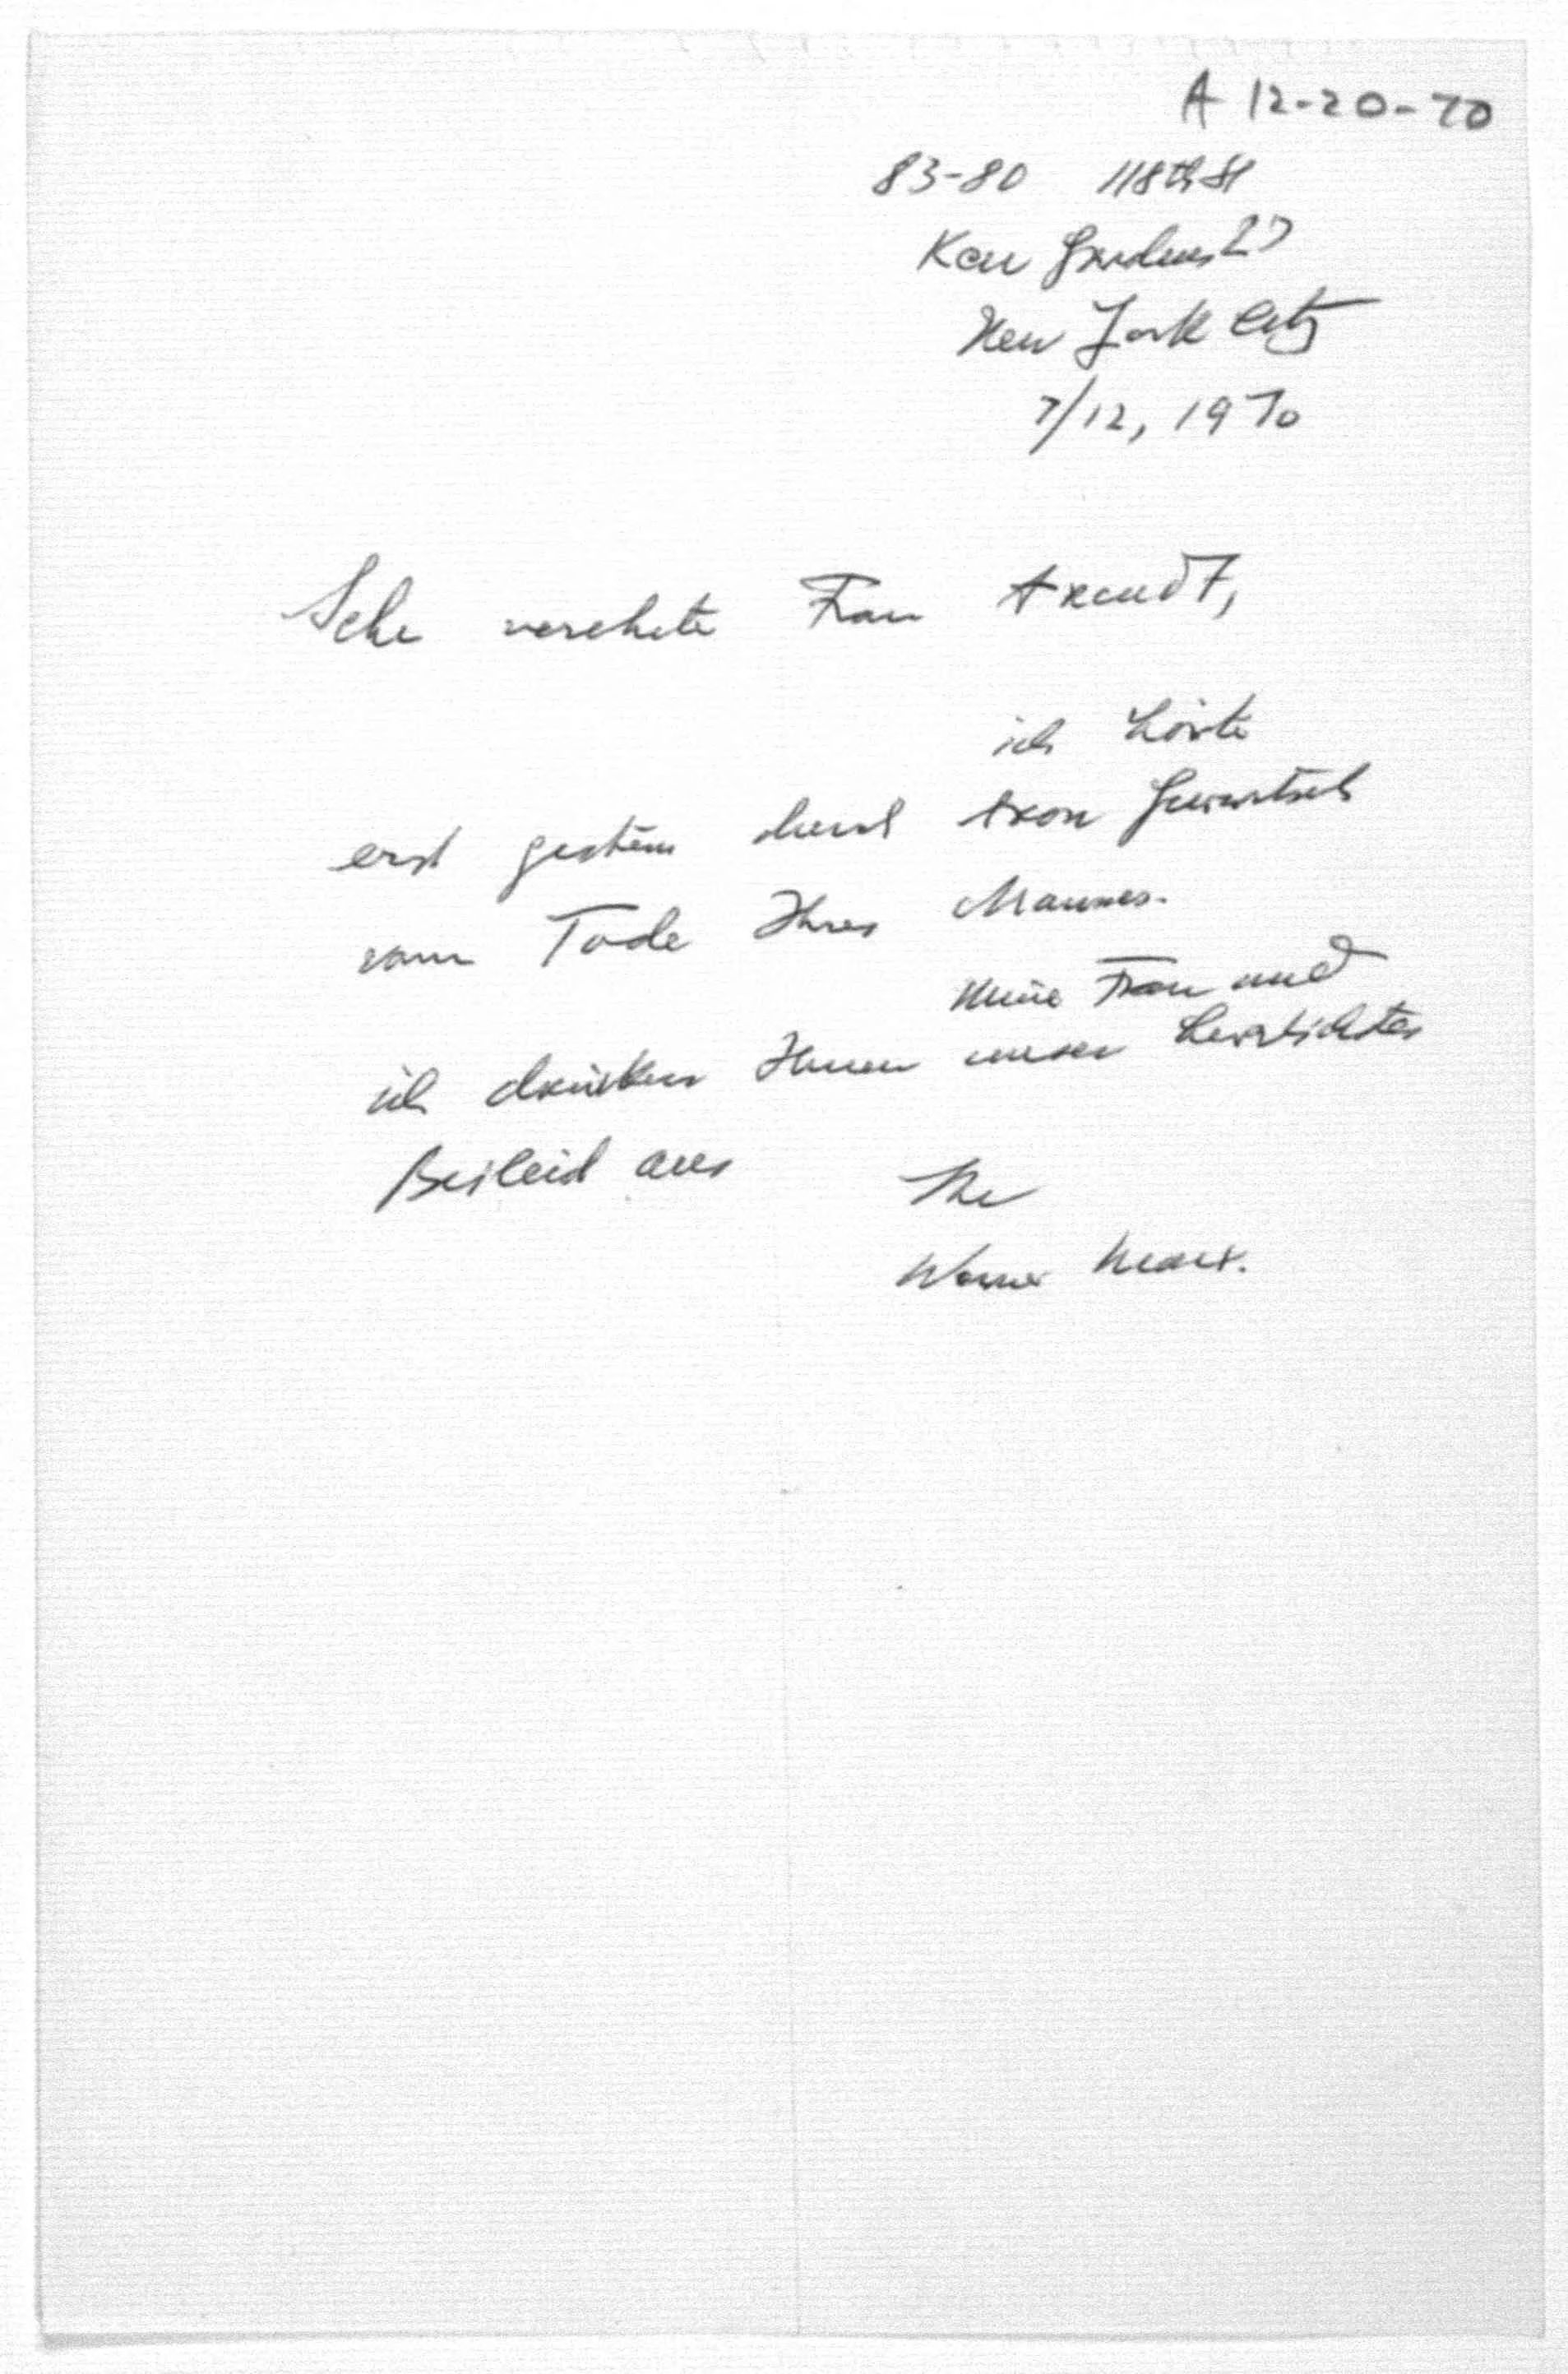 A 12-20-70
83-80 118th St
Kew Gardens 27
New York City
7/12, 1970
Sehr verehrte Frau Arendt,
ich hörte
erst gestern durch Aron Gurwitsch
vom Tode Ihres Mannes.
Meine Frau und
ich drücken Ihnen unser herzlichstes
Beileid aus
Ihr
Werner Marx.